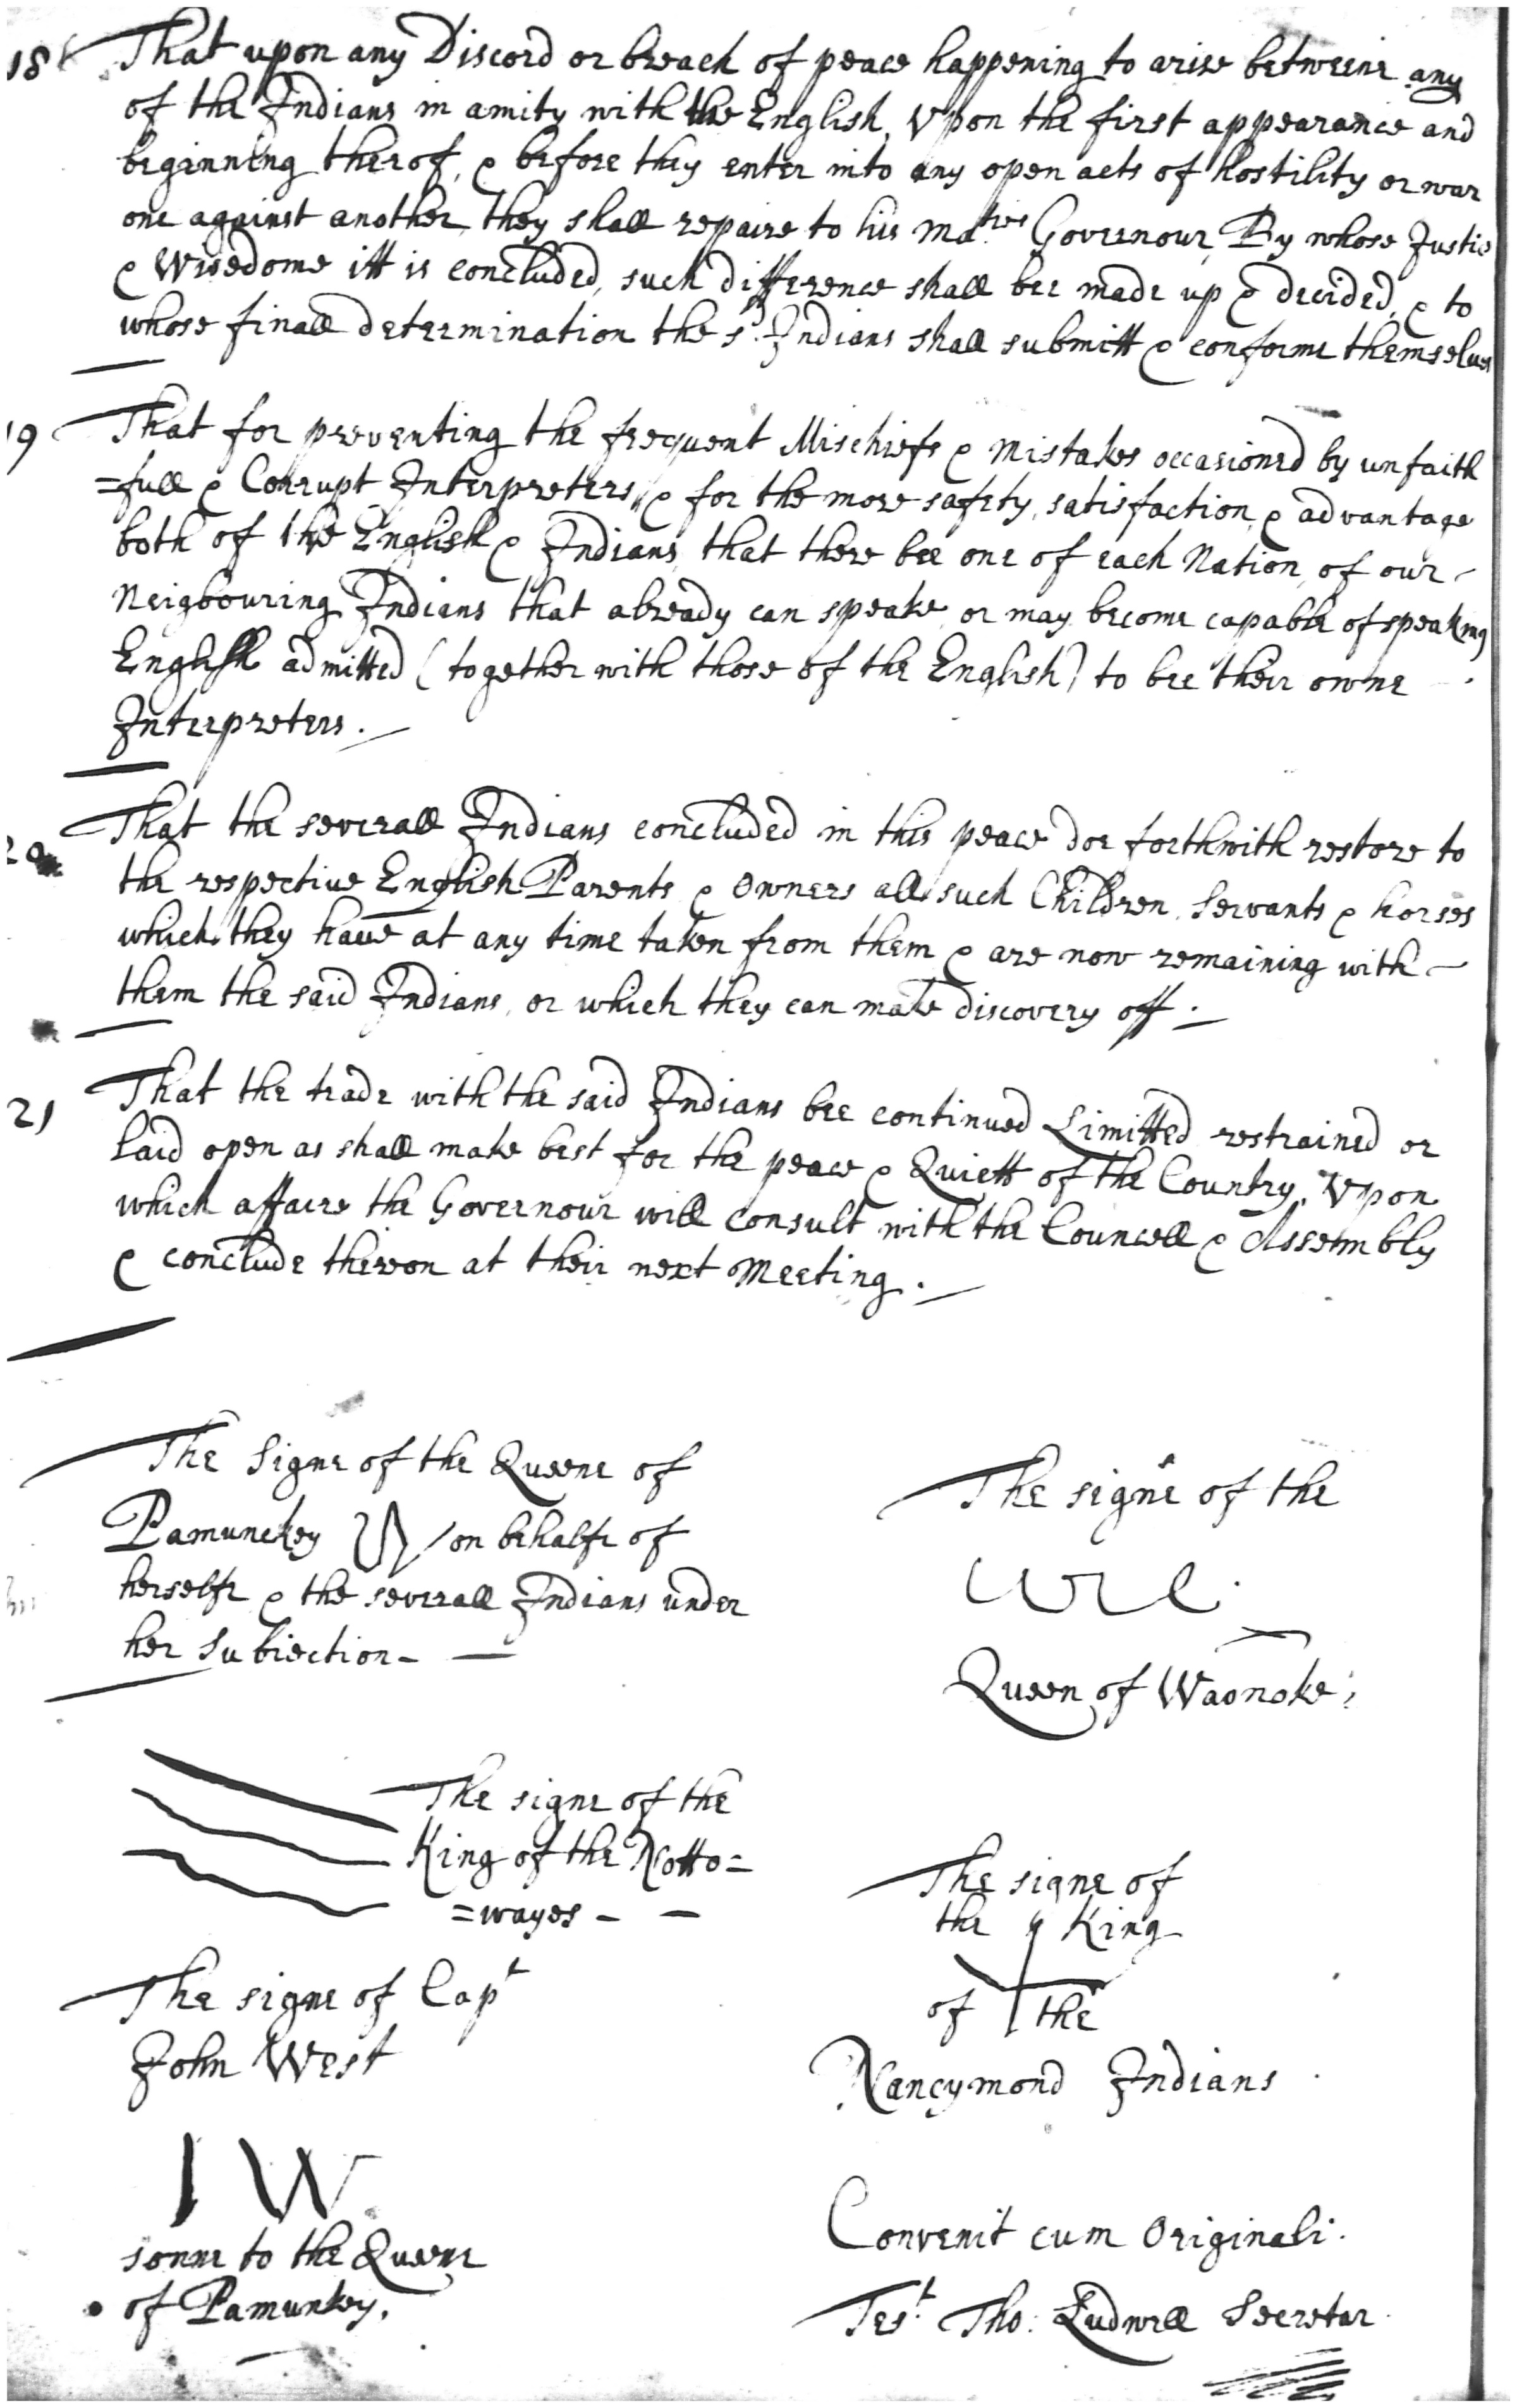 18 That upon any Discord or breach of peace happening to arise betweene any
of the Indians in amity with the English, Vpon the first appearance and
beginning therof, & before they enter into any open acts of hostility or war
one against another, they shall repaire to his Ma.ties Governour, By whose Justice
& Wisedome itt is concluded, such difference shall bee made up & decided, & to
whose finall determination the sd. Indians shall submitt & conforme themselues
19 That for preventing the frequent Mischiefs & mistakes occasioned by unfaith
=full & Corrupt Interpreters, & for the more safety, satisfaction, & advantage
both of the English & Indians, that there bee one of each Nation, of our
Neigbouring Indians that already can speake, or may become capable of speaking
English admitted (together with those of the English) to bee their owne
Interpreters.
20 That the severall Indians concluded in this peace doe forthwith restore to
the respective English Parents & Owners all such Children, Servants & horses
which they haue at any time taken from them & are now remaining with
them the said Indians, or which they can make discovery off.
21 That the trade with the said Indians bee continued Limitted restrained or
laid open as shall make best for the peace & Quiett of the Country, Vpon
which affaire the Governour will consult with the Councell & Assembly
& conclude thereon at their next Meeting.
The Signe of the Queene of
Pamunckey on behalfe of
herselfe & the severall Indians under
her Subiection
The signe of the
Queen of Waonoke,
The signe of the
King of the Notto=
=wayes
The signe of
the King
of the
Nancymond Indians
The signe of Capt
John West
I W
sonne to the Queene
of Pamunkey.
Convenit cum Originali.
Test. Tho: Ludwell Secretar